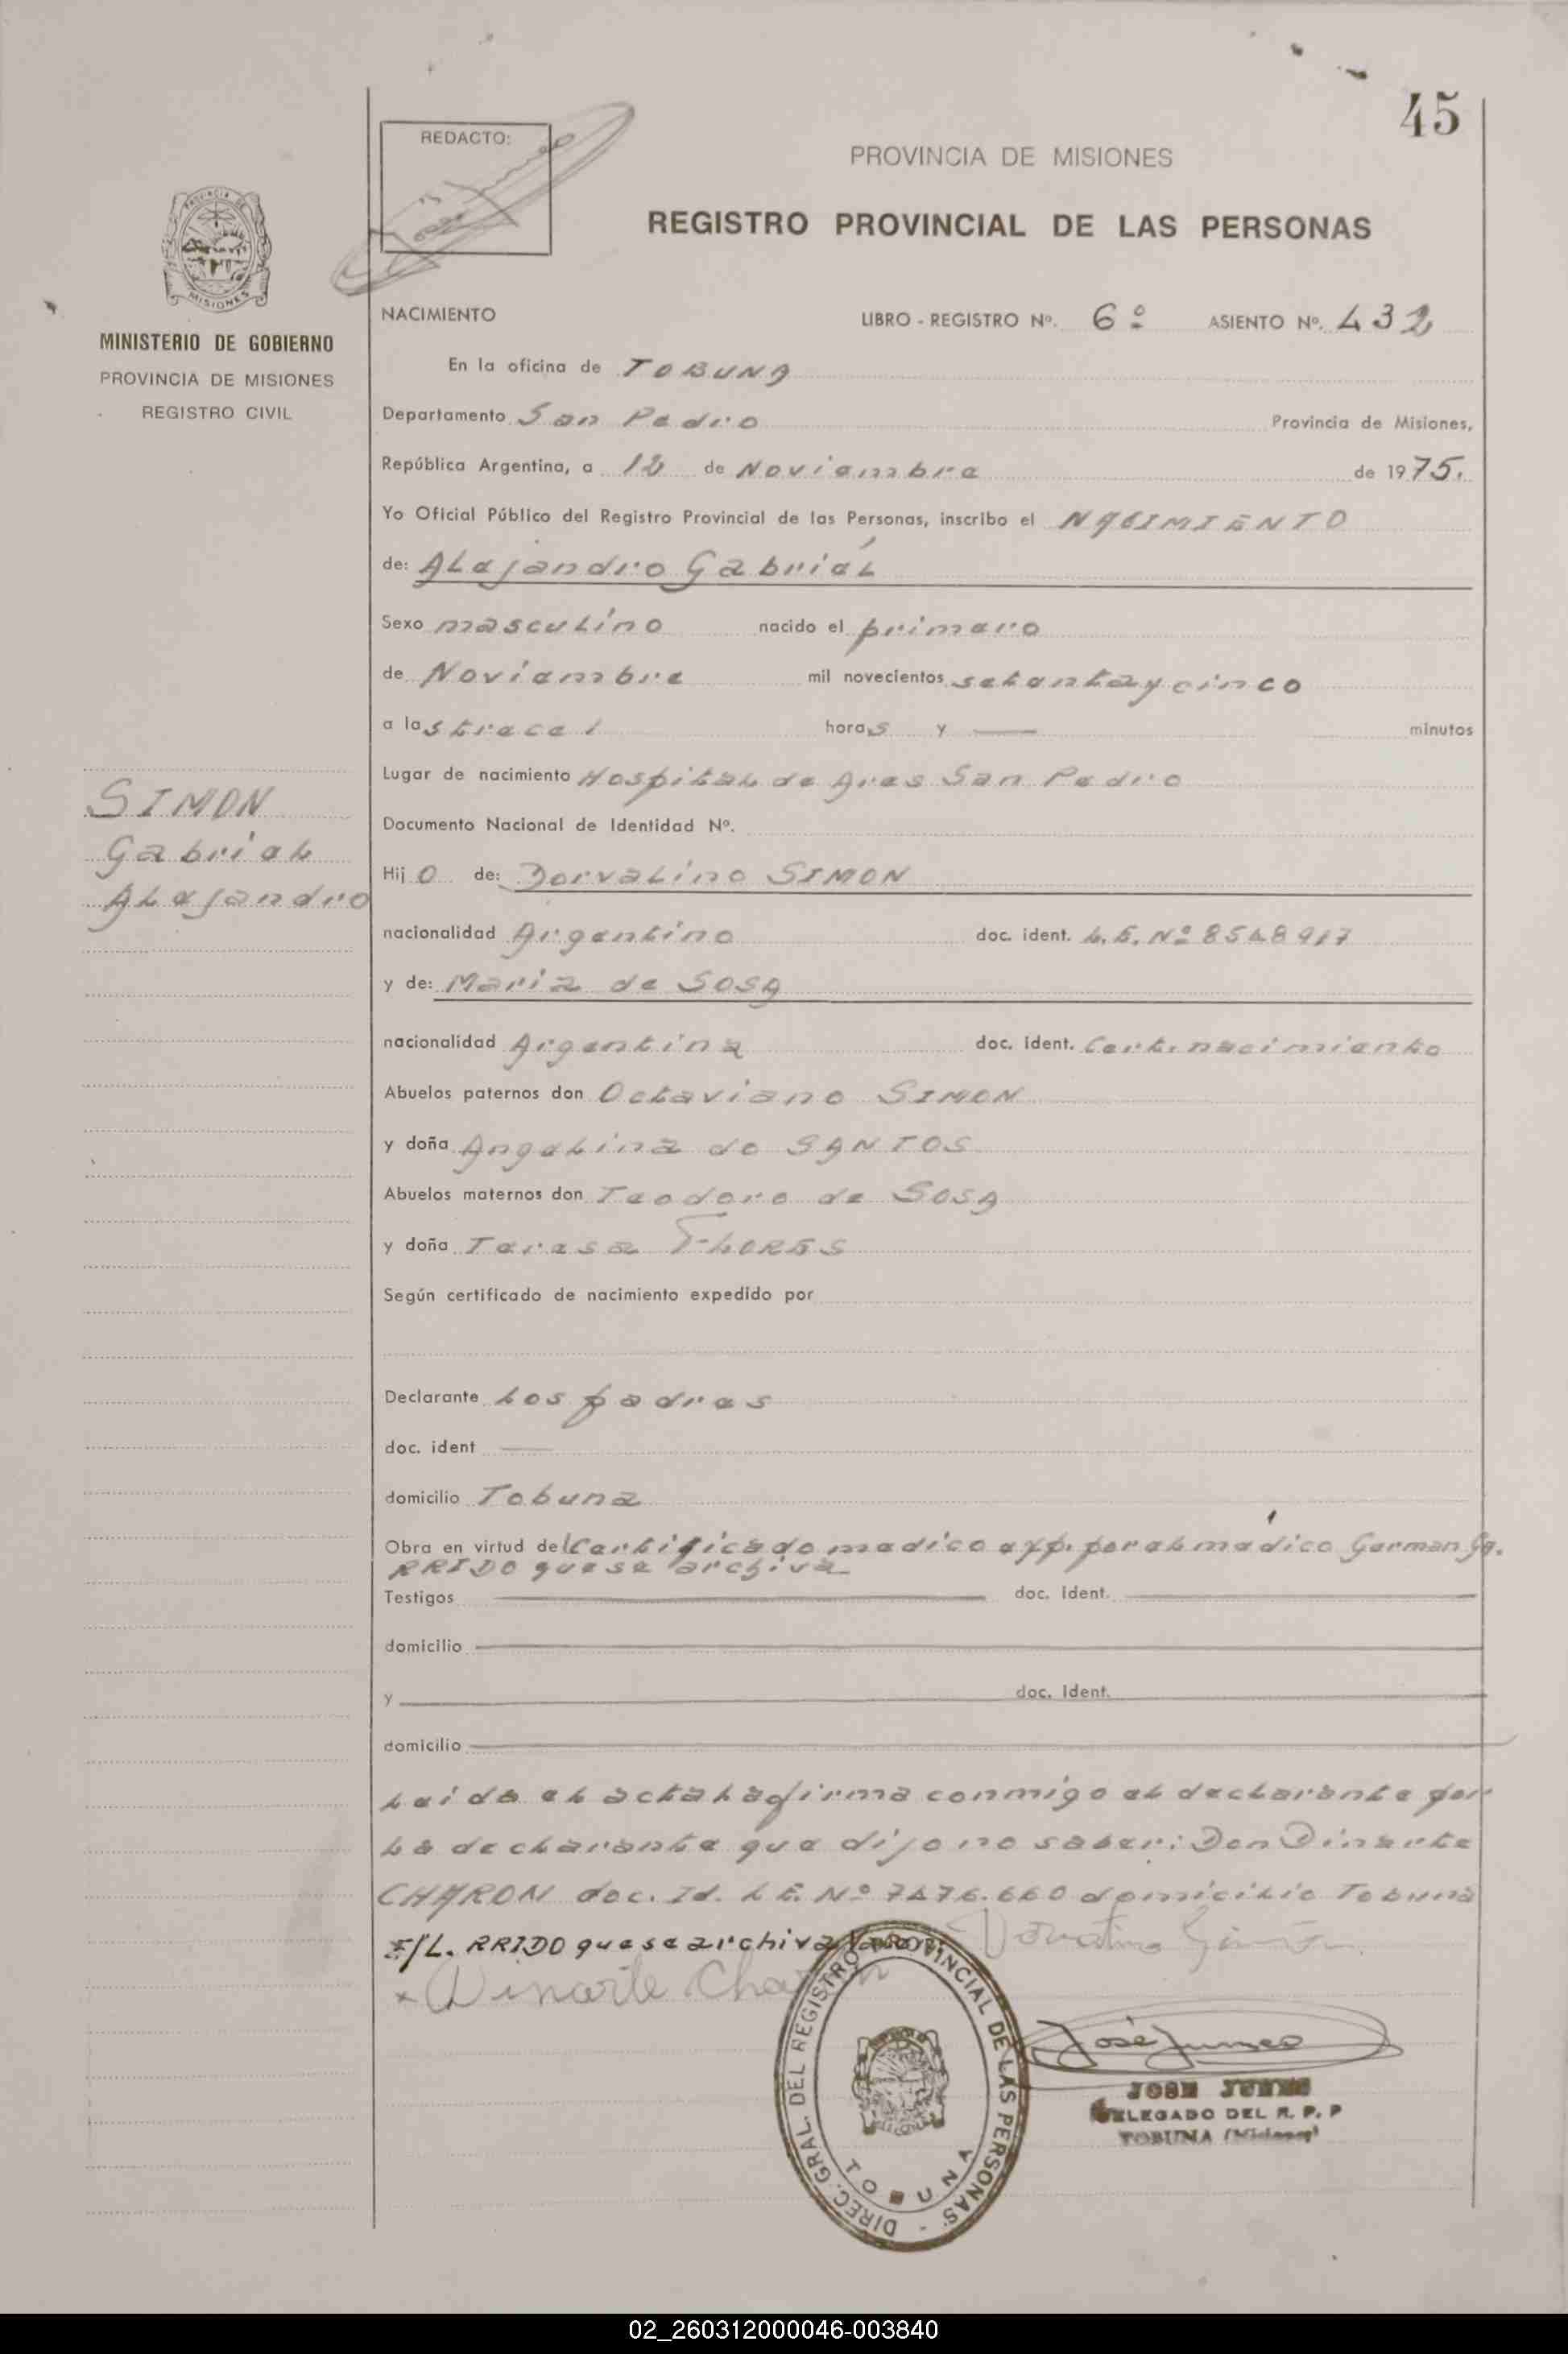 45
REDACTO:
PROVINCIA DE MISIONES
REGISTRO PROVINCIAL DE LAS PERSONAS
PROVINCIA DE
MISIONES
MINISTERIO DE GOBIERNO
PROVINCIA DE MISIONES
REGISTRO CIVIL
NACIMIENTO LIBRO - REGISTRO Nº. 6º ASIENTO Nº. 432
En la oficina de TOBUNA
Departamento San Pedro Provincia de Misiones,
República Argentina, a 12 de Noviembre de 1975.
Yo Oficial Público del Registro Provincial de las Personas, inscribo el NACIMIENTO
de: Alejandro Gabriel
Sexo masculino nacido el primero
de Noviembre mil novecientos setenta y cinco
a las trece horas y — minutos
Lugar de nacimiento Hospital de Area San Pedro
SIMON
Gabriel
Alejandro
Documento Nacional de Identidad Nº.
Hijo de: Dorvalino SIMON
nacionalidad Argentino doc. ident. L.E. Nº 8548917
y de: Maria de SOSA
nacionalidad Argentina doc. ident. Cert. nacimiento
Abuelos paternos don Octaviano SIMON
y doña Angelina do SANTOS
Abuelos maternos don Teodoro de SOSA
y doña Teresa FLORES
Según certificado de nacimiento expedido por
Declarante Los padres
doc. ident —
domicilio Tobuna
Obra en virtud del Certificado medico exp. por el médico German GA.
RRIDO que se archiva
Testigos doc. ident.
domicilio
y doc. ident.
domicilio
Leida el acta la firma conmigo el declarante por
la declarante que dijo no saber: Don Dinarte
CHARON doc. Id. L.E. Nº 7476.660 domicilio Tobuna
E/L. RRIDO que se archiva
Dinarte Charon
DIREC. GRAL. DEL REGISTRO PROVINCIAL DE LAS PERSONAS -
TOBUNA
José Junes
JOSE JUNES
DELEGADO DEL R. P. P
TOBUNA (Misiones)
02_260312000046-003840